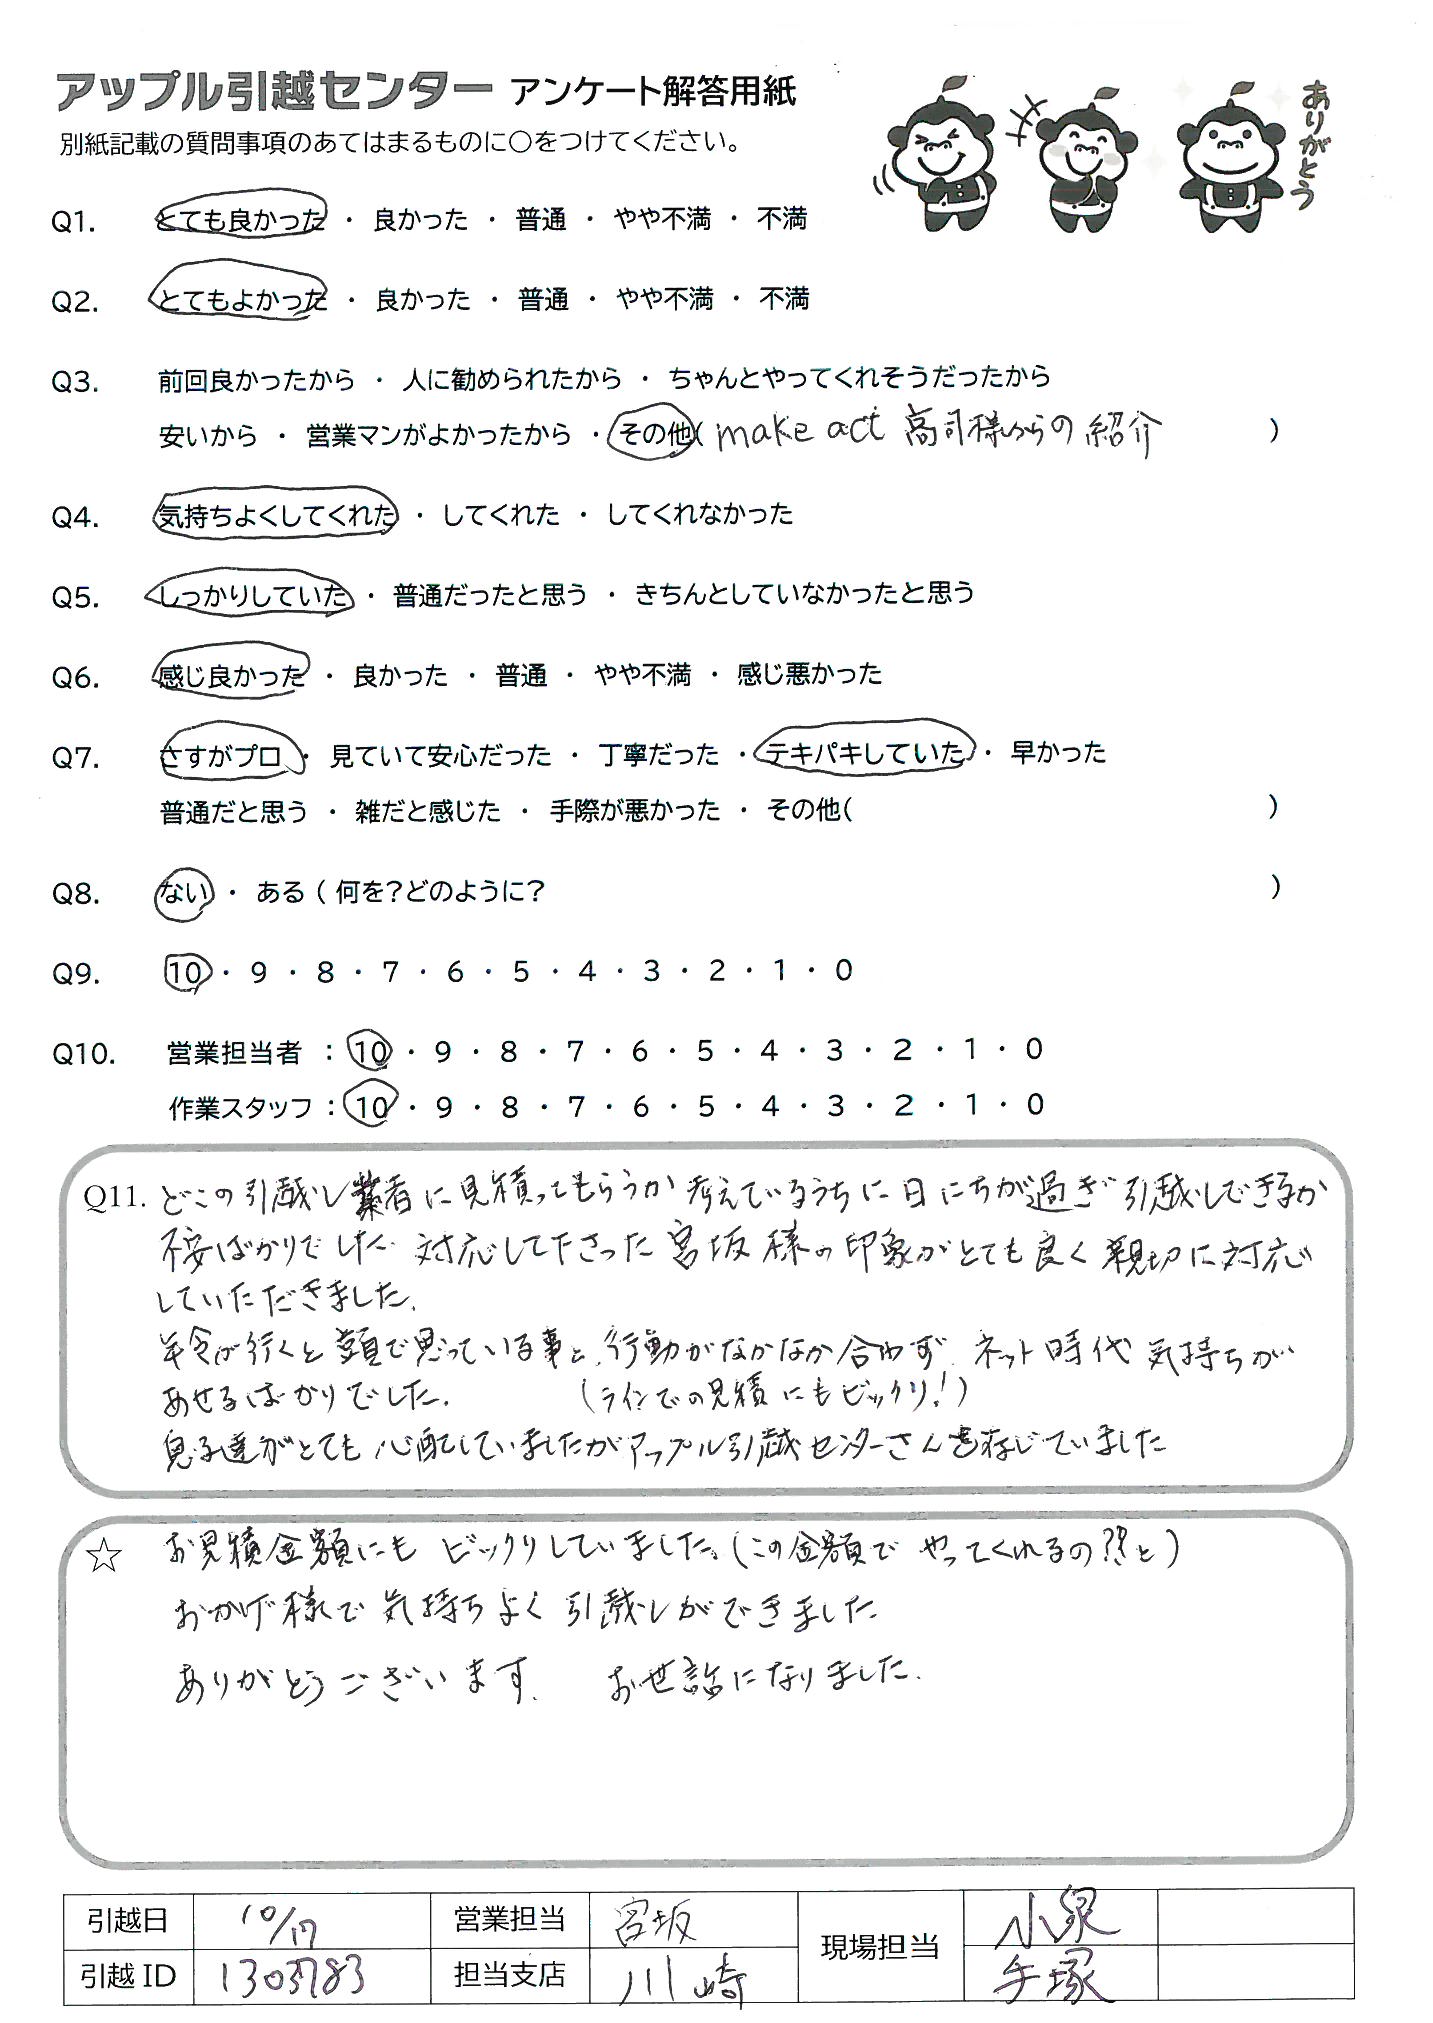 アップル引越センター アンケート解答用紙
別紙記載の質問事項のあてはまるものに○をつけてください。
ありがとう
Q1. とても良かった ・ 良かった ・ 普通 ・ やや不満 ・ 不満
Q2. とてもよかった ・ 良かった ・ 普通 ・ やや不満 ・ 不満
Q3. 前回良かったから ・ 人に勧められたから ・ ちゃんとやってくれそうだったから
安いから ・ 営業マンがよかったから ・ その他( make act 高司様からの紹介 )
Q4. 気持ちよくしてくれた ・ してくれた ・ してくれなかった
Q5. しっかりしていた ・ 普通だったと思う ・ きちんとしていなかったと思う
Q6. 感じ良かった ・ 良かった ・ 普通 ・ やや不満 ・ 感じ悪かった
Q7. さすがプロ ・ 見ていて安心だった ・ 丁寧だった ・ テキパキしていた ・ 早かった
普通だと思う ・ 雑だと感じた ・ 手際が悪かった ・ その他( )
Q8. ない ・ ある ( 何を?どのように? )
Q9. 10 ・ 9 ・ 8 ・ 7 ・ 6 ・ 5 ・ 4 ・ 3 ・ 2 ・ 1 ・ 0
Q10. 営業担当者 : 10 ・ 9 ・ 8 ・ 7 ・ 6 ・ 5 ・ 4 ・ 3 ・ 2 ・ 1 ・ 0
作業スタッフ : 10 ・ 9 ・ 8 ・ 7 ・ 6 ・ 5 ・ 4 ・ 3 ・ 2 ・ 1 ・ 0
Q11. どこの引越し業者に見積ってもらうか考えているうちに日にちが過ぎ引越しできるか
不安ばかりでした 対応して下さった宮坂様の印象がとても良く親切に対応
していただきました.
年令が行くと頭で思っている事と、行動がなかなか合わず、ネット時代 気持ちが
あせるばかりでした. (ラインでの見積にもビックリ!)
息子達がとても心配していましたがアップル引越センターさんを存じていました
☆ お見積金額にも ビックリしていました。(この金額で やってくれるの??と)
おかげ様で気持ちよく引越しができました
ありがとうございます. お世話になりました.
引越日 10/17 営業担当 宮坂 現場担当 小泉
引越ID 1303783 担当支店 川崎 手塚